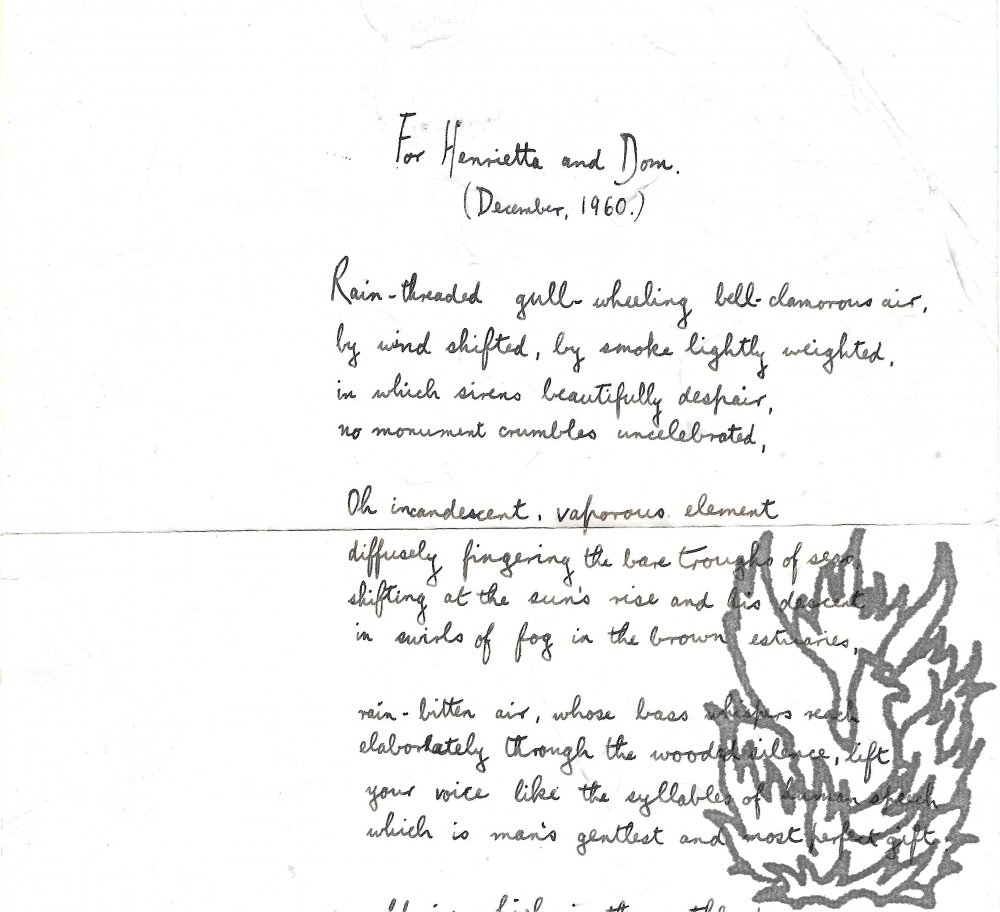 For Henrietta and Dom.
(December, 1960.)
Rain-threaded gull-wheeling bell-clamorous air,
by wind shifted, by smoke lightly weighted,
in which sirens beautifully despair,
no monument crumbles uncelebrated,
Oh incandescent, vaporous element
diffusely fingering the bare troughs of seas,
shifting at the sun's rise and his descent
in swirls of fog in the brown estuaries,
rain-bitten air, whose bass whispers reach
elaborately through the wooded silence, lift
your voice like the syllables of human speech
which is man's gentlest and most perfect gift.